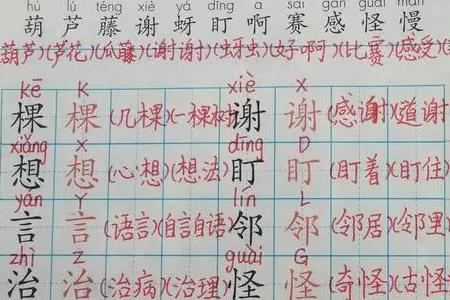 hú lú téng xiè yá dīng a sài gǎn guài màn
葫 芦 藤 谢 蚜 盯 啊 赛 感 怪 慢
葫芦)(芦花)(瓜藤)(谢谢)(蚜虫)(好啊)(比赛)(感受)(
kē K xiè X
棵 棵 (几棵)(一棵树) 谢 谢 (感谢)(道谢
xiǎng x dīng D
想 想 (心想)(想法) 盯 盯 (盯着)(盯住)
yán Y lín L
言 言 (语言)(自言自语) 邻 邻 (邻居)(邻里
zhì Z guài G
治 治 (治病)(治理) 怪 怪 (奇怪)(古怪